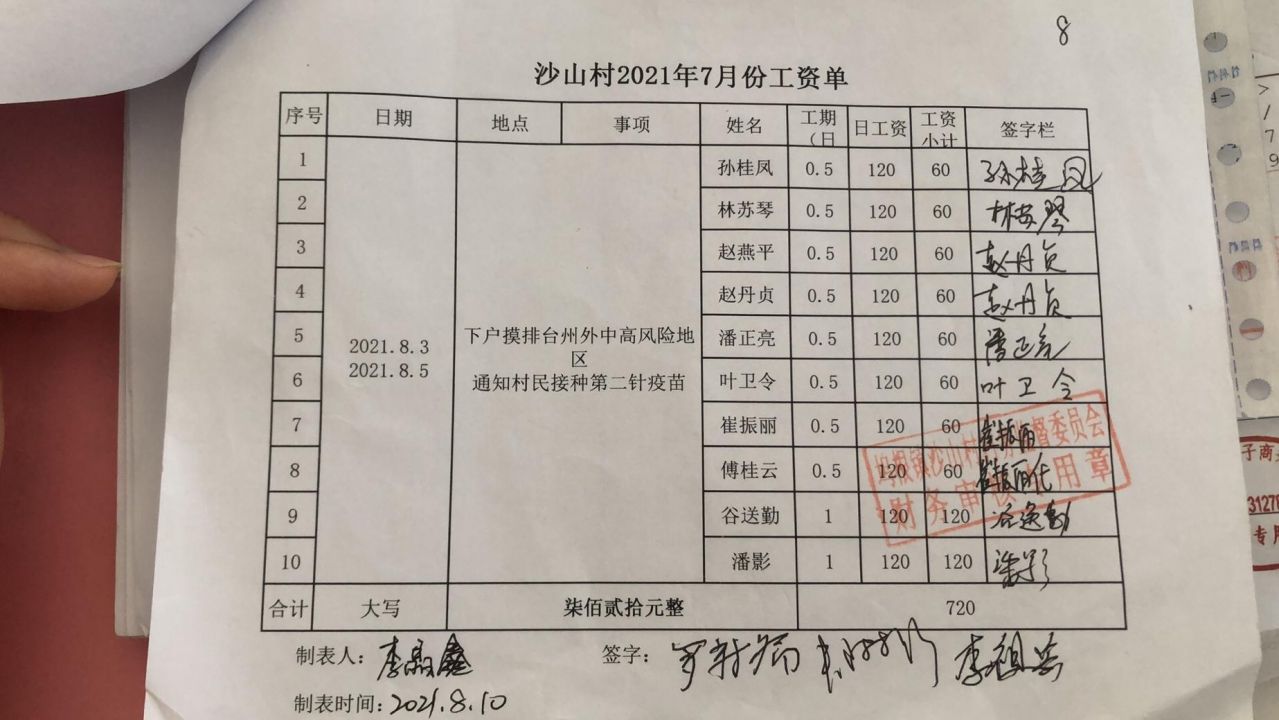 8
沙山村2021年7月份工资单
序号 日期 地点 事项 姓名 工期（日 日工资 工资小计 签字栏
1 孙桂凤 0.5 120 60 孙桂凤
2 林苏琴 0.5 120 60 林苏琴
3 赵燕平 0.5 120 60 赵丹贞
4 赵丹贞 0.5 120 60 赵丹贞
5 潘正亮 0.5 120 60 潘正亮
2021.8.3
2021.8.5
下户摸排台州外中高风险地
区
通知村民接种第二针疫苗
6 叶卫令 0.5 120 60 叶卫令
7 崔振丽 0.5 120 60 崔振丽
8 傅桂云 0.5 120 60 崔振丽代
9 谷送勤 1 120 120 谷送勤
10 潘影 1 120 120 潘影
坞根镇沙山村村务监督委员会
财务审核专用章
合计 大写 柒佰贰拾元整 720
制表人： 签字： 李祖岳
制表时间：2021.8.10
子商
3127
专用